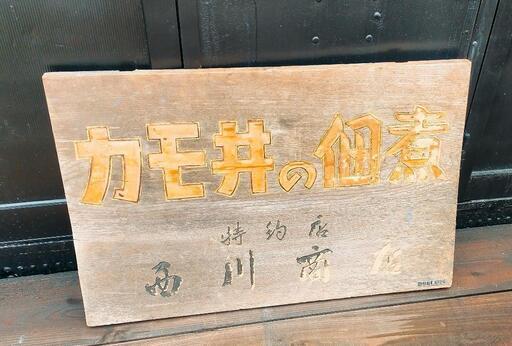 カモ井の佃煮
特約店
西川商店